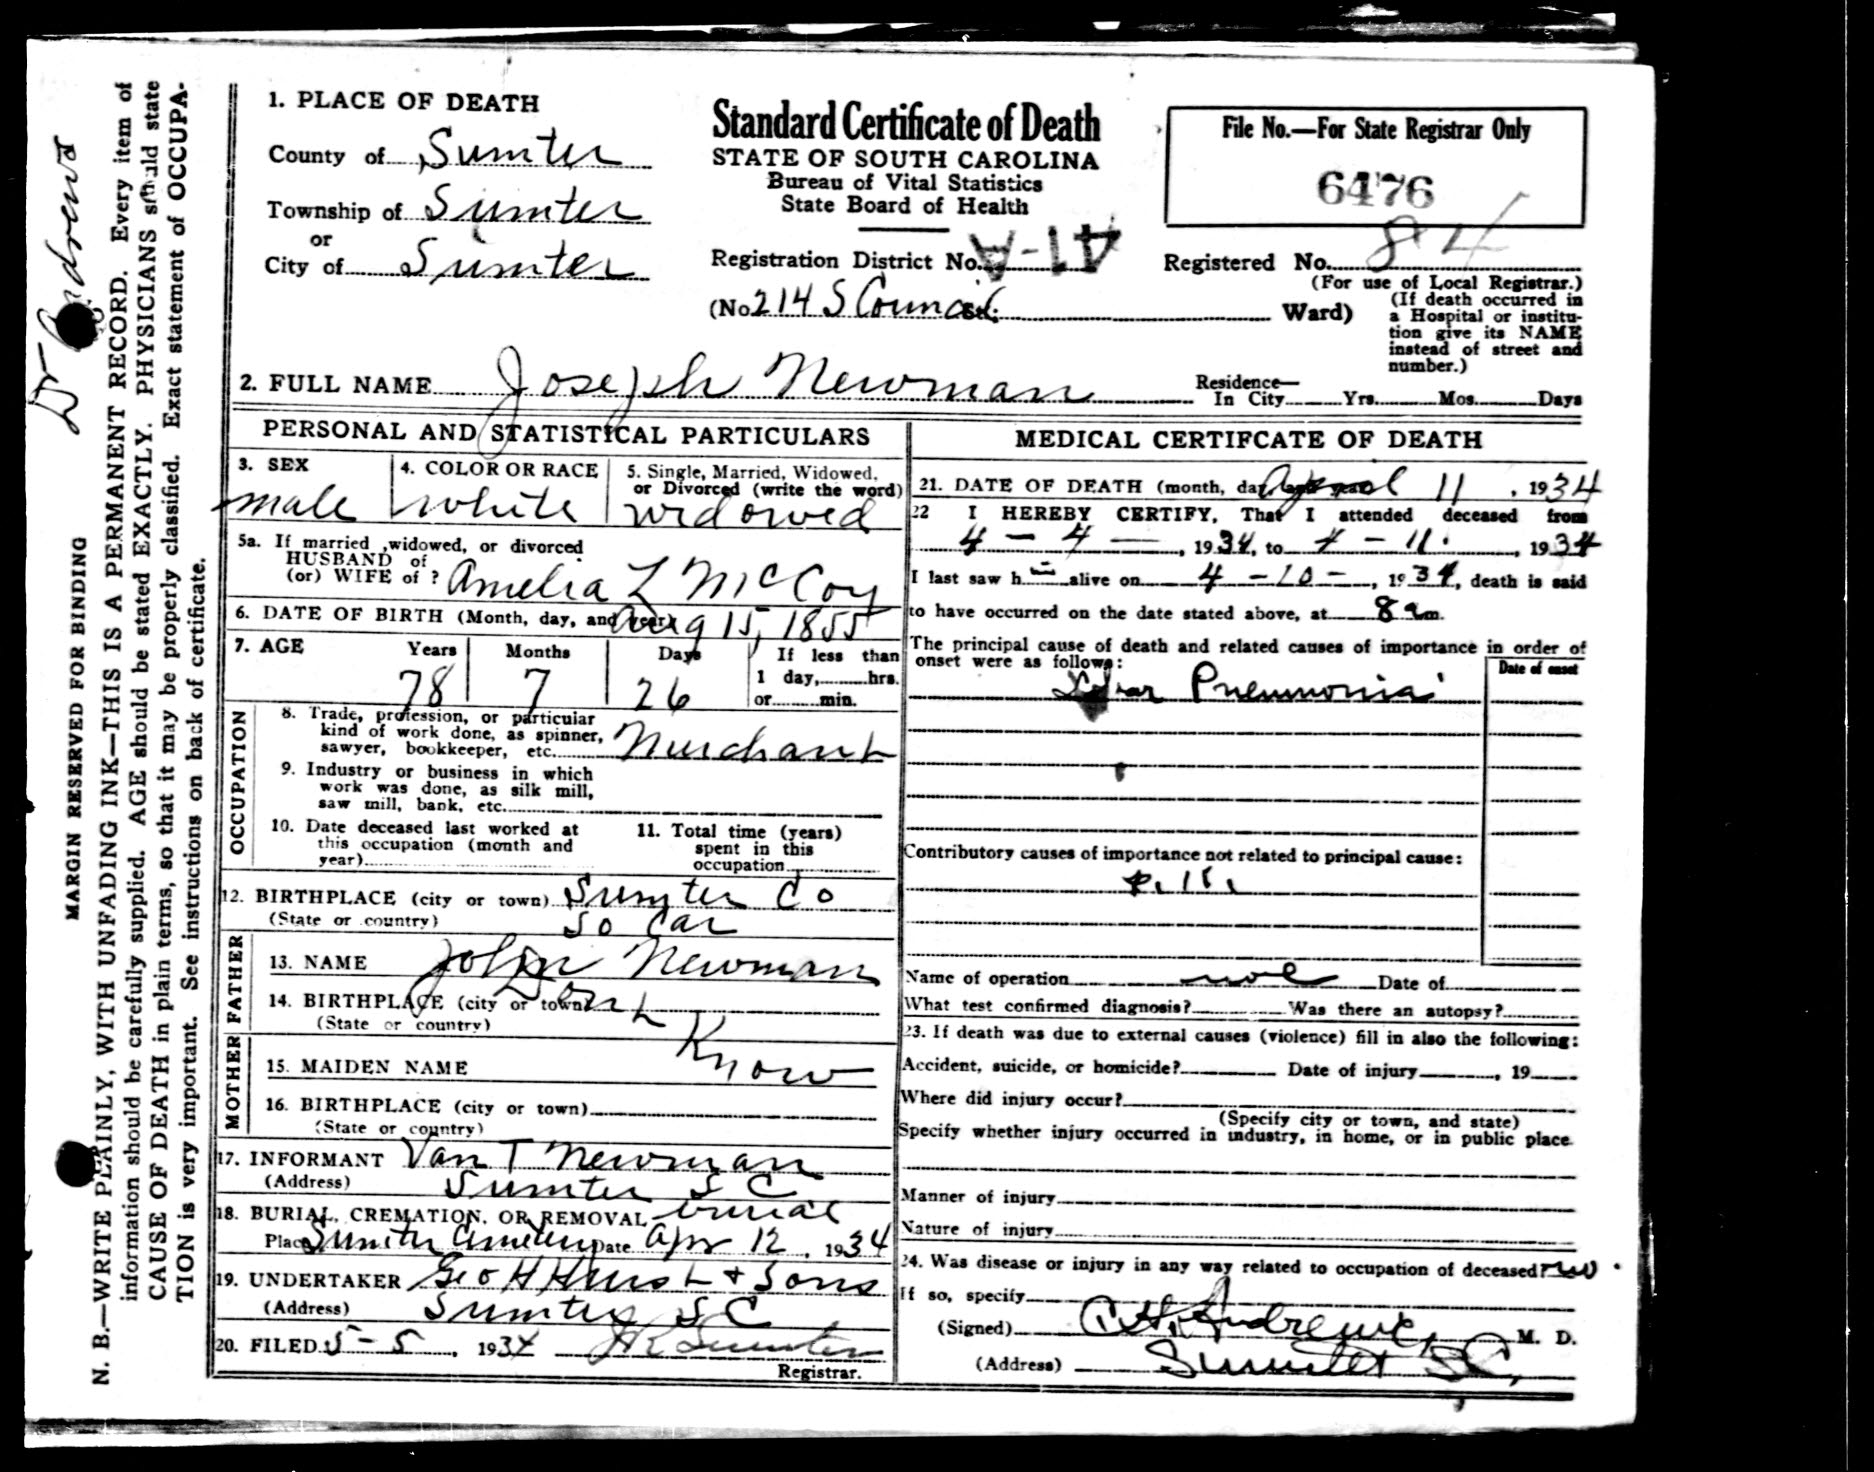 1. PLACE OF DEATH
County of Sumter
Township of Sumter
or
City of Sumter
Standard Certificate of Death
STATE OF SOUTH CAROLINA
Bureau of Vital Statistics
State Board of Health
Registration District No. 41-A
(No 214 S Council St.; Ward)
File No.—For State Registrar Only
6476
Registered No. 84
(For use of Local Registrar.)
(If death occurred in
a Hospital or institu-
tion give its NAME
instead of street and
number.)
2. FULL NAME Joseph Newman
Residence—
In City Yrs. Mos. Days
PERSONAL AND STATISTICAL PARTICULARS
3. SEX
male
4. COLOR OR RACE
white
5. Single, Married, Widowed,
or Divorced (write the word)
widowed
5a. If married, widowed, or divorced
HUSBAND of
(or) WIFE of ? Amelia L McCoy
6. DATE OF BIRTH (Month, day, and year) Aug 15, 1855
7. AGE Years Months Days If less than
1 day, hrs.
or min.
78 7 26
OCCUPATION
8. Trade, profession, or particular
kind of work done, as spinner,
sawyer, bookkeeper, etc. Merchant
9. Industry or business in which
work was done, as silk mill,
saw mill, bank, etc.
10. Date deceased last worked at
this occupation (month and
year)
11. Total time (years)
spent in this
occupation
12. BIRTHPLACE (city or town) Sumter Co
(State or country) So Car
FATHER
13. NAME John Newman
14. BIRTHPLACE (city or town) Dont
(State or country) Know
MOTHER
15. MAIDEN NAME
16. BIRTHPLACE (city or town)
(State or country)
17. INFORMANT Van T Newman
(Address) Sumter S C
18. BURIAL, CREMATION, OR REMOVAL burial
Place Sumter Cemetery Date Apr 12, 1934
19. UNDERTAKER Geo H Hurst + Sons
(Address) Sumter S C
20. FILED 5-5, 1934
Registrar.
MEDICAL CERTIFCATE OF DEATH
21. DATE OF DEATH (month, day, and year) April 11, 1934
22 I HEREBY CERTIFY, That I attended deceased from
4 - 4 -, 1934, to 4 - 11, 1934
I last saw h alive on 4 - 10 -, 1934, death is said
to have occurred on the date stated above, at 8 am.
The principal cause of death and related causes of importance in order of
onset were as follows:
Date of onset
Lobar Pneumonia
Contributory causes of importance not related to principal cause:
Name of operation Date of
What test confirmed diagnosis? Was there an autopsy?
23. If death was due to external causes (violence) fill in also the following:
Accident, suicide, or homicide? Date of injury, 19
Where did injury occur?
(Specify city or town, and state)
Specify whether injury occurred in industry, in home, or in public place.
Manner of injury
Nature of injury
24. Was disease or injury in any way related to occupation of deceased? no
If so, specify
(Signed) Andrews, M. D.
(Address) Sumter SC,
MARGIN RESERVED FOR BINDING
N. B.—WRITE PLAINLY, WITH UNFADING INK—THIS IS A PERMANENT RECORD. Every item of
information should be carefully supplied. AGE should be stated EXACTLY. PHYSICIANS should state
CAUSE OF DEATH in plain terms, so that it may be properly classified. Exact statement of OCCUPA-
TION is very important. See instructions on back of certificate.
Dr Andrews